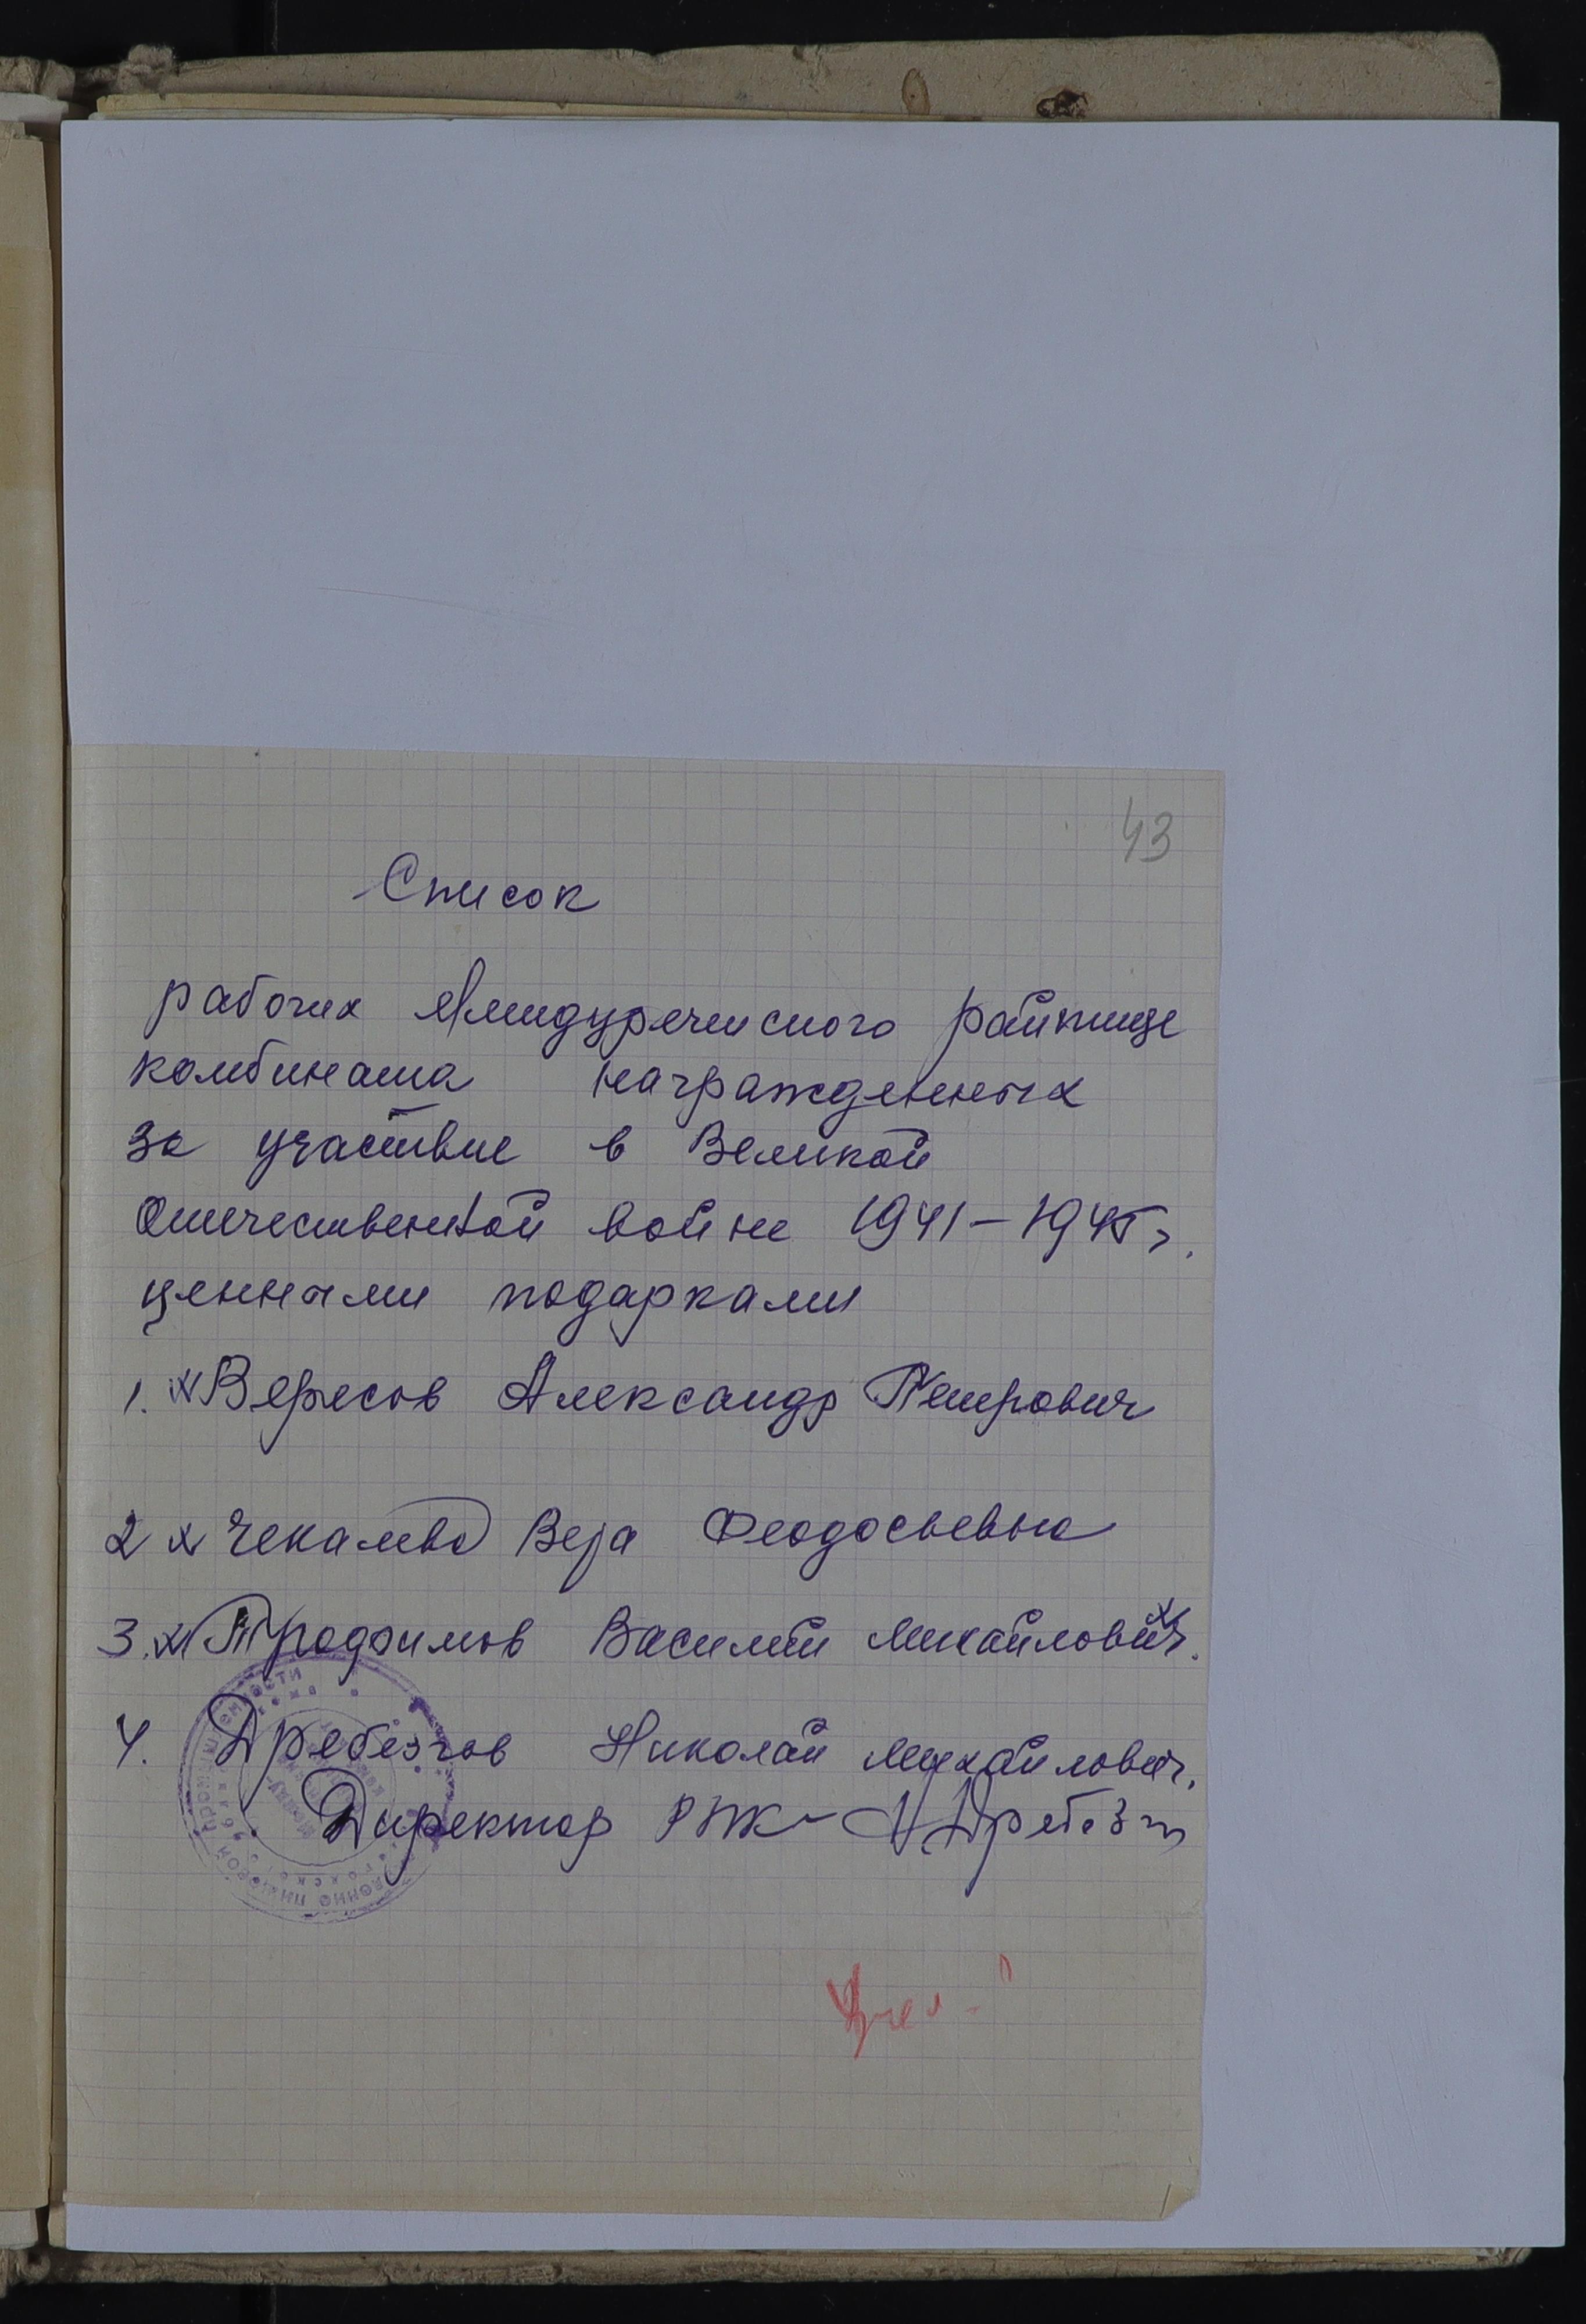 43
Список
рабочих Междуреченского райпище
комбината награжденных
за участвие в Великой
Отечественной войне 1941-1945 г.
ценными подарками
1. х Вересов Александр Петрович
2 х Чекалева Вера Феодосьевна
3. х Трофимов Василий Михайлович.
4. Дребезгов Николай Михайлович.
Директор РПК